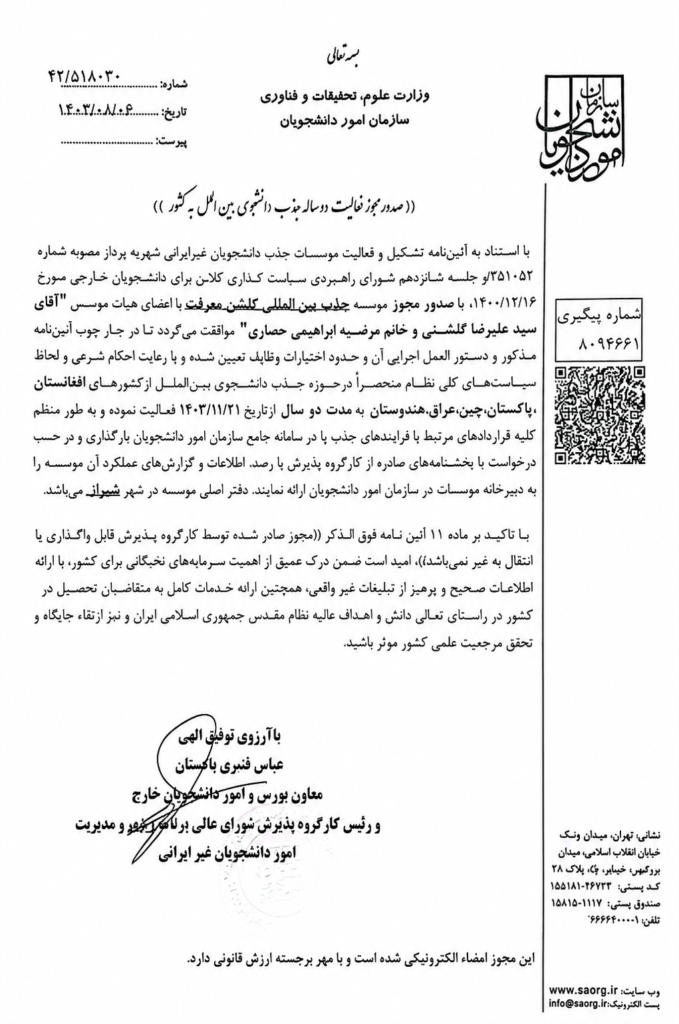 بسمه تعالی
وزارت علوم، تحقیقات و فناوری
سازمان امور دانشجویان
شماره: ۴۲/۵۱۸۰۳۰
تاریخ: ۱۴۰۳/۰۸/۰۶
پیرست:
سازمان امور دانشجویان
(( صدور مجوز فعالیت دو ساله جذب دانشجوی بین الملل به کشور ))
با استناد به آئین‌نامه تشکیل و فعالیت موسسات جذب دانشجویان غیرایرانی شهریه پرداز مصوبه شماره
۳۵۱۰۵۲/و جلسه شانزدهم شورای راهبردی سیاست کذاری کلان برای دانشجویان خارجی مورخ
۱۴۰۰/۱۲/۱۶، با صدور مجوز موسسه جذب بین المللی کلشن معرفت با اعضای هیات موسس "آقای
سید علیرضا گلشنی و خانم مرضیه ابراهیمی حصاری" موافقت می‌گردد تا در جار چوب آئین‌نامه
مذکور و دستور العمل اجرایی آن و حدود اختیارات وظایف تعیین شده و با رعایت احکام شرعی و لحاظ
سیاست‌های کلی نظام منحصراً درحوزه جذب دانشجوی بین‌الملل ازکشورهای افغانستان
،پاکستان،چین،عراق،هندوستان به مدت دو سال ازتاریخ ۱۴۰۳/۱۱/۲۱ فعالیت نموده و به طور منظم
کلیه قراردادهای مرتبط با فرایندهای جذب پا در سامانه جامع سازمان امور دانشجویان بارگذاری و در حسب
درخواست با بخشنامه‌های صادره از کارگروه پذیرش پا رصد. اطلاعات و گزارش‌های عملکرد آن موسسه را
به دبیرخانه موسسات در سازمان امور دانشجویان ارائه نمایند. دفتر اصلی موسسه در شهر شیراز می‌باشد.
با تاکید بر ماده ۱۱ آئین نامه فوق الذکر ((مجوز صادر شده توسط کارگروه پذیرش قابل واگذاری یا
انتقال به غیر نمی‌باشد))، امید است ضمن درک عمیق از اهمیت سرمایه‌های نخبگانی برای کشور، با ارائه
اطلاعات صحیح و پرهیز از تبلیغات غیر واقعی، همچتین ارائه خدمات کامل به متقاضبان تحصیل در
کشور در راستای تعالی دانش و اهداف عالیه نظام مقدس جمهوری اسلامی ایران و نبز ازتقاء جایگاه و
تحقق مرجعیت علمی کشور موثر باشید.
شماره پیگیری
۸۰۹۴۶۶۱
باآرزوی توفیق الهی
عباس قنبری باکستان
معاون بورس و امور دانشجویان خارج
و رئیس کارگروه پذیرش شورای عالی و مدیریت
امور دانشجویان غیر ایرانی
نشانی: تهران، میدان ونک
خیابان انقلاب اسلامی، میدان
پلاک ۲۸
کد پستی: ۱۵۵۱۸۱-۴۶۷۳۳
صندوق پستی: ۱۱۱۷-۱۵۸۱۵
تلفن: ۱-۶۶۶۶۴۰۰۰
این مجوز امضاء الکترونیکی شده است و با مهر برجسته ارزش قانونی دارد.
وب سایت: www.saorg.ir
پست الکترونیک: info@saorg.ir